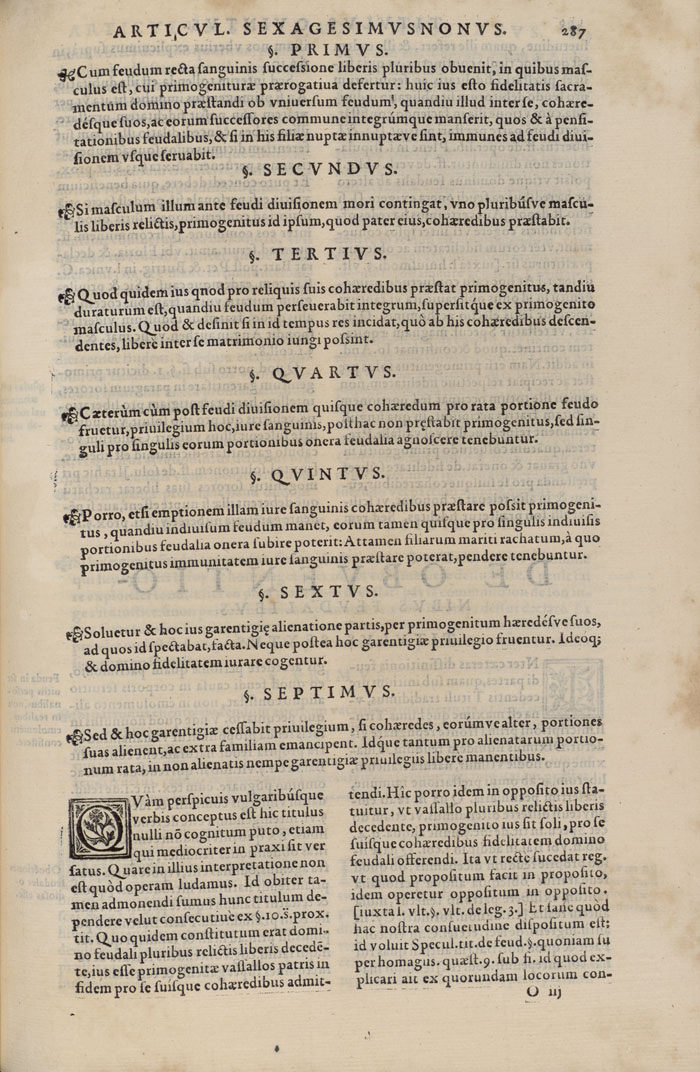 ARTICVL. SEXAGESIMVSNONVS. 287
§. PRIMVS.
Cum feudum recta sanguinis successione liberis pluribus obuenit, in quibus mas-
culus est, cui primogenituræ prærogatiua defertur: huic ius esto fidelitatis sacra-
mentum domino præstandi ob vniuersum feudum, quandiu illud inter se, cohære-
désque suos, ac eorum successores commune integrúmque manserit, quos & à pensi-
tationibus feudalibus, & si in his filiæ nuptæ innuptæve sint, immunes ad feudi diui-
sionem vsque seruabit.
§. SECVNDVS.
Si masculum illum ante feudi diuisionem mori contingat, vno pluribúsve mascu-
lis liberis relictis, primogenitus id ipsum, quod pater eius, cohæredibus præstabit.
§. TERTIVS.
Quod quidem ius qnod pro reliquis suis cohæredibus præstat primogenitus, tandiu
duraturum est, quandiu feudum perseuerabit integrum, supersitq́ue ex primogenito
masculus. Quod & desinit si in id tempus res incidat, quò ab his cohæredibus descen-
dentes, liberè inter se matrimonio iungi possint.
§. QVARTVS.
Cæterùm cùm post feudi diuisionem quisque cohæredum pro rata portione feudo
fruetur, priuilegium hoc, iure sanguinis, posthac non pręstabit primogenitus, sed sin-
guli pro singulis eorum portionibus onera feudalia agnoscere tenebuntur.
§. QVINTVS.
Porro, etsi emptionem illam iure sanguinis cohæredibus præstare possit primogeni-
tus, quandiu indiuisum feudum manet, eorum tamen quisque pro singulis indiuisis
portionibus feudalia onera subire poterit: Attamen filiarum mariti rachatum, à quo
primogenitus immunitatem iure sanguinis præstare poterat, pendere tenebuntur.
§. SEXTVS.
Soluetur & hoc ius garentigię alienatione partis, per primogenitum hæredésve suos,
ad quos id spectabat, facta. Neque postea hoc garentigiæ priuilegio fruentur. Ideoq;
& domino fidelitatem iurare cogentur.
§. SEPTIMVS.
Sed & hoc garentigiæ cessabit priuilegium, si cohæredes, eorúmve alter, portiones
suas alienent, ac extra familiam emancipent. Idque tantum pro alienatarum portio-
num rata, in non alienatis nempe garentigiæ priuilegus libere manentibus.
QVàm perspicuis vulgaribúsque
verbis conceptus est hic titulus
nulli nō cognitum puto, etiam
qui mediocriter in praxi sit ver
satus. Quare in illius interpretatione non
est quòd operam ludamus. Id obiter ta-
men admonendi sumus hunc titulum de-
pendere velut consecutiuè ex §.10.s̃.prox.
tit. Quo quidem constitutum erat domi-
no feudali pluribus relictis liberis decedē-
te, ius esse primogenitæ vassallos patris in
fidem pro se suisque cohæredibus admit-
tendi. Hic porro idem in opposito ius sta-
tuitur, vt vassallo pluribus relictis liberis
decedente, primogenito ius sit soli, pro se
suisque cohæredibus fidelitatem domino
feudali offerendi. Ita vt recte sucedat reg.
vt quod propositum facit in proposito,
idem operetur oppositum in opposito.
[iuxta l. vlt.§. vlt. de leg. 3.] Et sanè quòd
hac nostra consuetudine dispositum est:
id voluit Specul. tit. de feud.§. quoniam su
per homagus. quæst. 9. sub fi. id quod ex-
plicari ait ex quorundam locorum con-
O iij